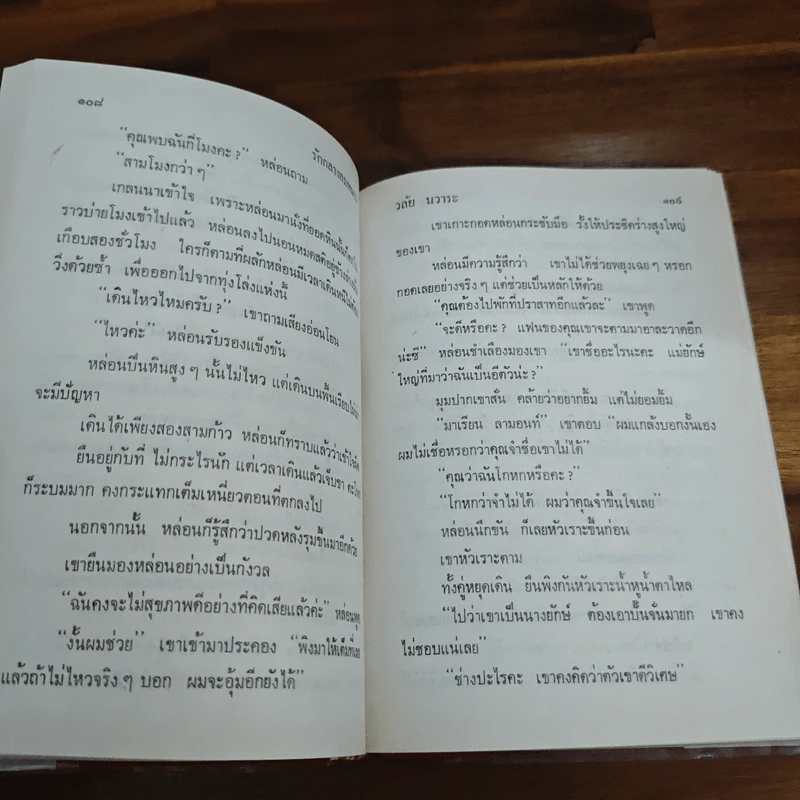 ๑๐๘
รักกลาง
“คุณพบฉันกี่โมงคะ ?” หล่อนถาม
“สามโมงกว่า ๆ”
เกลนนาเข้าใจ เพราะหล่อนมานั่งที่ยอดหินนั้น
ราวบ่ายโมงเข้าไปแล้ว หล่อนลงไปนอนหมดสติอยู่ข้างล่าง
เกือบสองชั่วโมง ใครก็ตามที่ผลักหล่อนมีเวลาเดินหนี
วิ่งด้วยซ้ำ เพื่อออกไปจากทุ่งโล่งแห่งนั้
“เดินไหวไหมครับ ?” เขาถามเสียงอ่อนโยน
“ไหวค่ะ” หล่อนรับรองแข็งขัน
หล่อนปีนหินสูง ๆ นั้นไม่ไหว แต่เดินบนพื้นเรียบ
จะมีปัญหา
เดินได้เพียงสองสามก้าว หล่อนก็ทราบแล้วว่าเข้าใจผิด
ยืนอยู่กับที่ ไม่กระไรนัก แต่เวลาเดินแล้วเจ็บขา
ก็ระบมมาก คงกระแทกเต็มเหนี่ยวตอนที่ตกลงไป
นอกจากนั้น หล่อนก็รู้สึกว่าปวดหลังรุมขึ้นมาอีกด้วย
เขายืนมองหล่อนอย่างเป็นกังวล
“ฉันคงจะไม่สุขภาพดีอย่างที่คิดเสียแล้วค่ะ” หล่อนพูด
“งั้นผมช่วย” เขาเข้ามาประคอง “พิงมาให้เต็มที่เลย
แล้วถ้าไม่ไหวจริง ๆ บอก ผมจะอุ้มอีกยังได้”
วลัย นวาระ
๑๐๙
เขาเกาะกอดหล่อนกระชับมือ รั้งให้ประชิดร่างสูงใหญ่
ของเขา
หล่อนมีความรู้สึกว่า เขาไม่ได้ช่วยพยุงเฉย ๆ หรอก
กอดเลยอย่างจริง ๆ แต่ช่วยเป็นหลักให้ด้วย
“คุณต้องไปพักที่ปราสาทอีกแล้วละ” เขาพูด
“จะดีหรือคะ ? แฟนของคุณเขาจะตามมาอาละวาดอีก
น่ะซี” หล่อนชำเลืองมองเขา “เขาชื่ออะไรนะคะ แม่ยักษ์
ใหญ่ที่มาว่าฉันเป็นอีตัวน่ะ ?”
มุมปากเขาสั่น คล้ายว่าอยากยิ้ม แต่ไม่ยอมยิ้ม
“มาเรียน ลามอนท์” เขาตอบ “ผมแกล้งบอกงั้นเอง
ผมไม่เชื่อหรอกว่าคุณจำชื่อเขาไม่ได้”
“คุณว่าฉันโกหกหรือคะ ?”
“โกหกว่าจำไม่ได้ ผมว่าคุณจำขึ้นใจเลย”
หล่อนนึกขัน ก็เลยหัวเราะขึ้นก่อน
เขาหัวเราะตาม
ทั้งคู่หยุดเดิน ยืนพิงกันหัวเราะน้ำหูน้ำตาไหล
“ไปว่าเขาเป็นนางยักษ์ ต้องเอาปั้นจั่นมายก เขาคง
ไม่ชอบแน่เลย”
“ช่างปะไรคะ เขาคงคิดว่าตัวเขาดีวิเศษ”